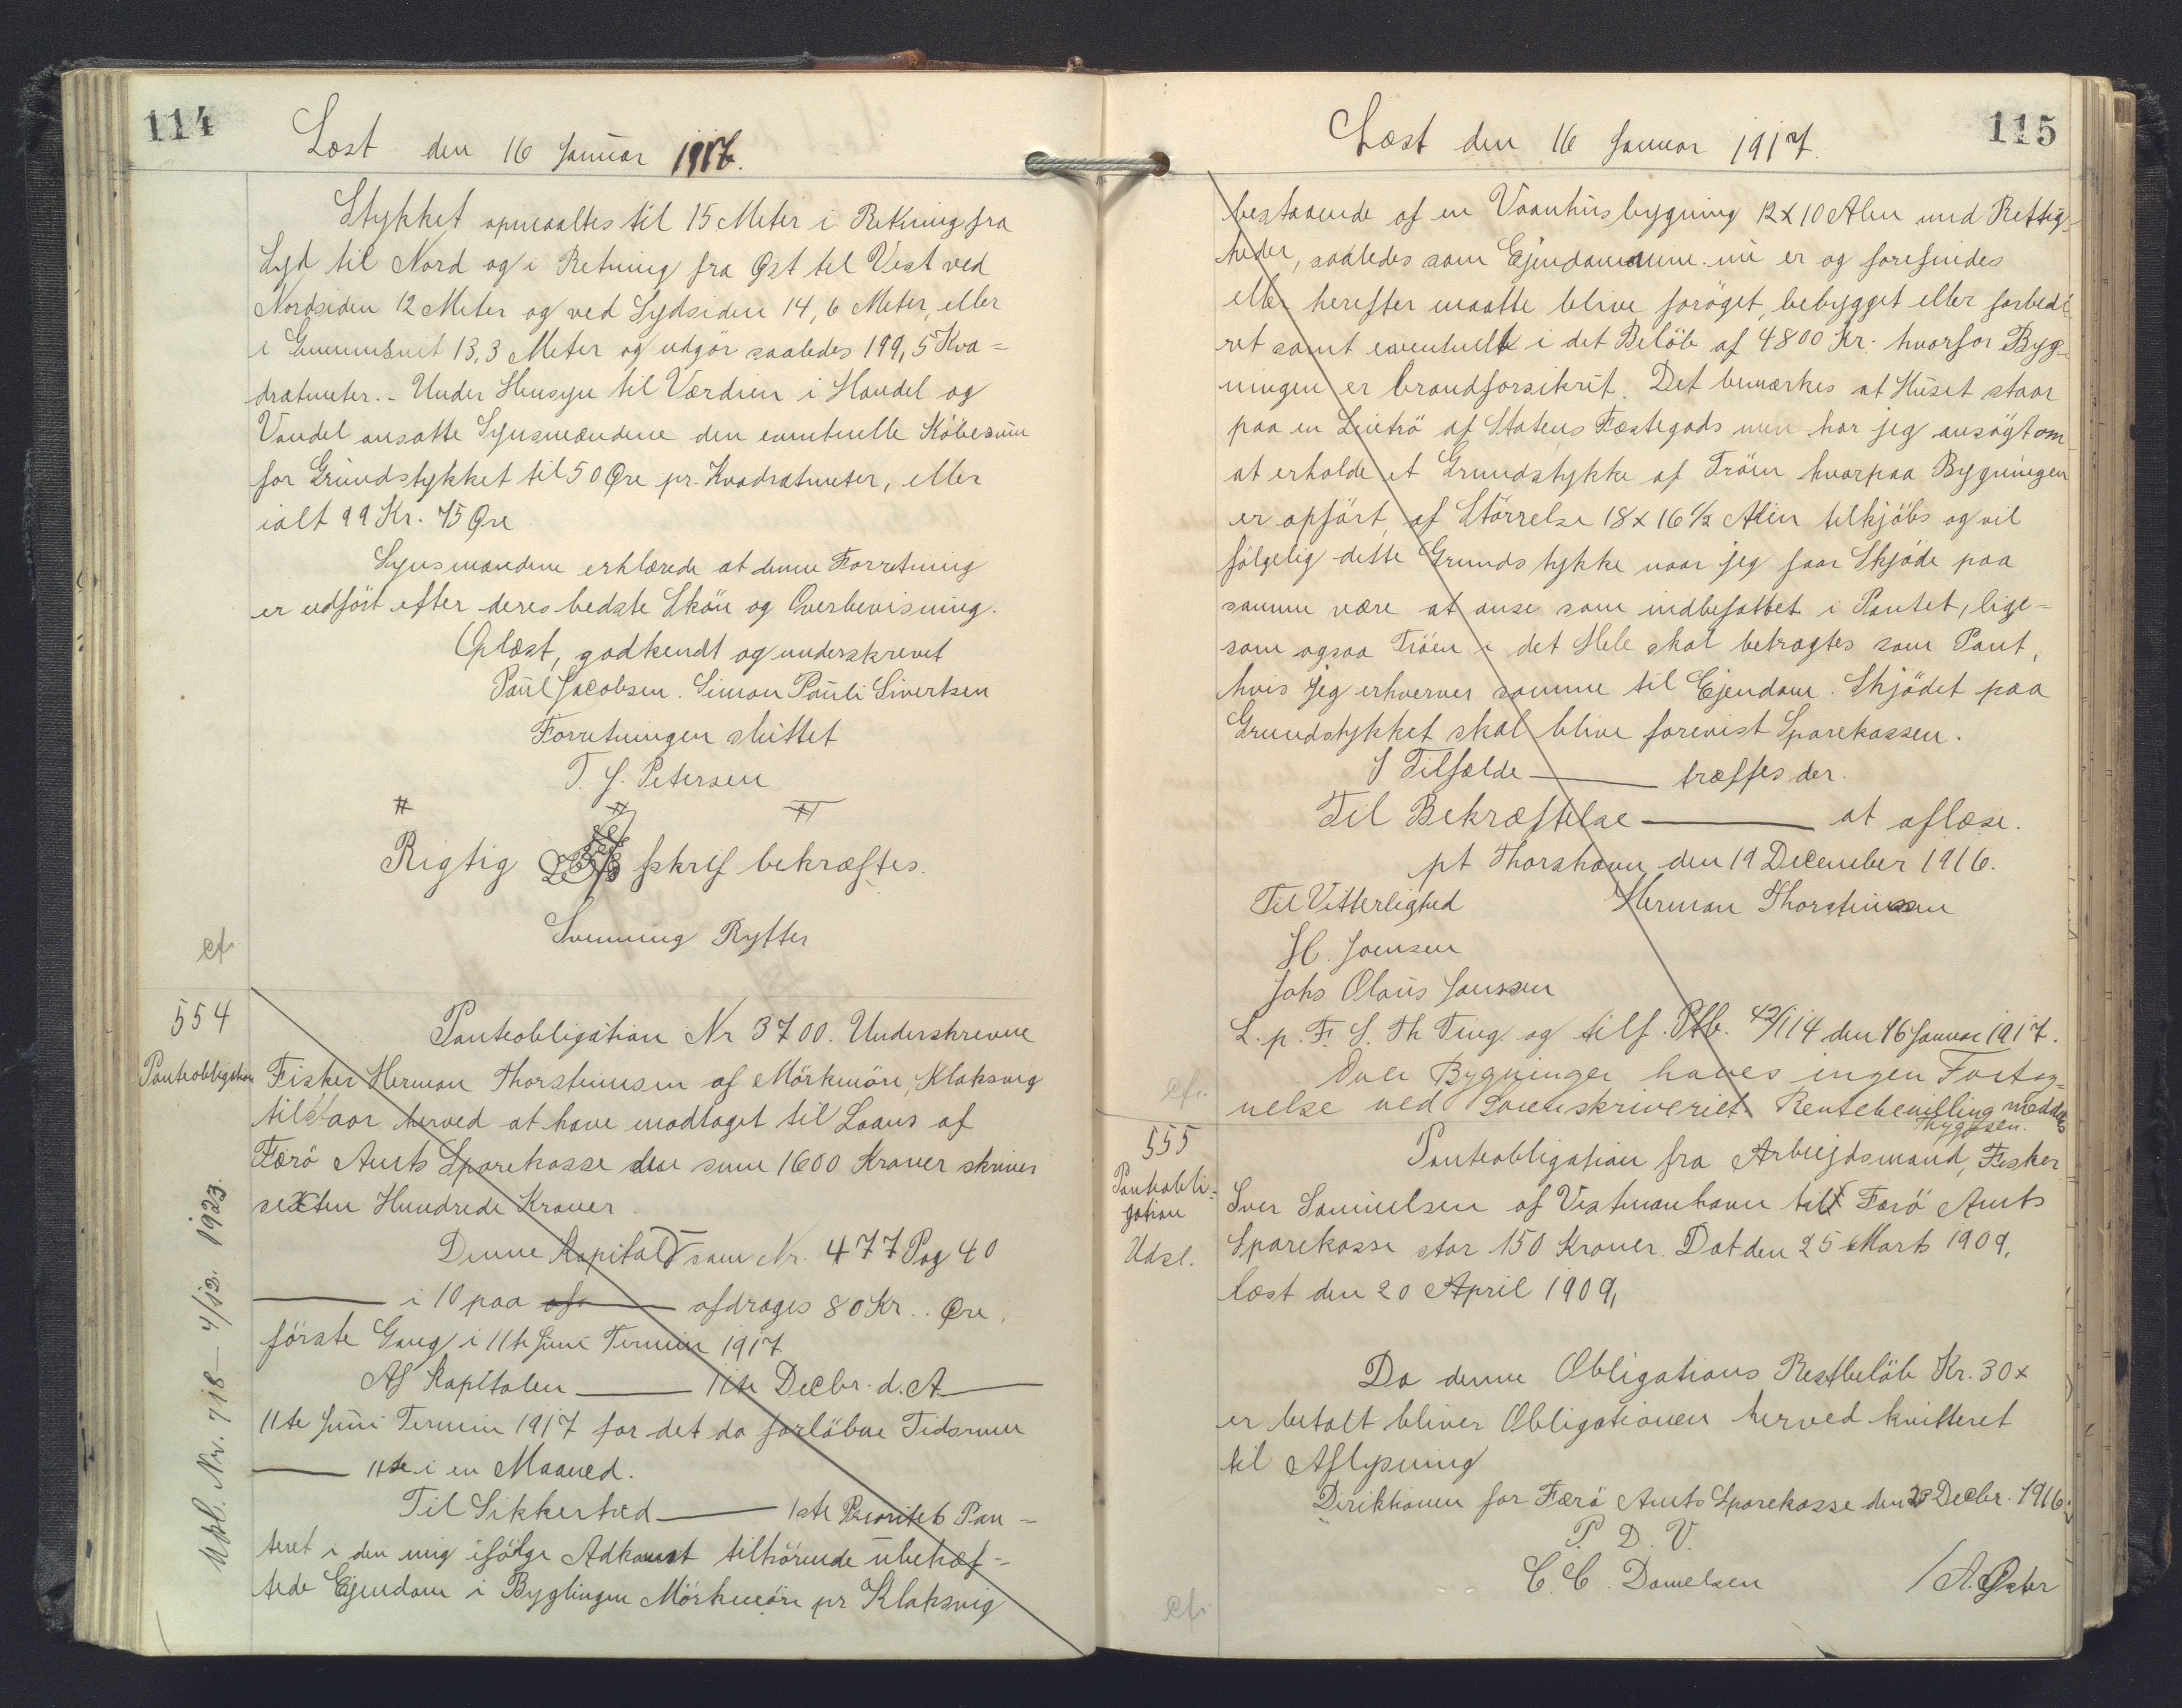 114
Læst den 16 Januar 1917.
Stykket opmaaltes til 15 Meter i Retning fra
Syd til Nord og i Retning fra Øst til Vest ved
Nordsiden 12 Meter og ved Sydsiden 14,6 Meter, eller
i Gennemsnit 13,3 Meter og udgör saaledes 199,5 Kva=
dratmeter. - Under Hensyn til Værdien i Handel og
Vandel ansatte Synsmændene den eventuelle Köbesum
for Grundstykket til 50 Øre pr. Kvadratmeter, eller
ialt 99 Kr. 75 Øre
Synsmændene erklærede at denne Forretning
er udfört efter deres bedste Skön og Overbevisning.
Oplæst, godkendt og underskrevet
Paul Jacobsen. Simon Pauli Sivertsen
Forretningen sluttet
T. J. Petersen
Rigtig skrif bekræftes.
Svenning Rytter
cf.
554
Panteobligation
Panteobligation Nr 3700. Underskrevne
Fisker Herman Thorsteinsen af Mörkeöre, Klaksvig
tilstaar herved at have modtaget til Laans af
Færö Amts Sparekasse den sum 1600 Kroner skriver
sexten Hundrede Kroner.
Denne Kapital som Nr. 477 Pag 40
— i 10 paa — afdrages 80 Kr. .. Øre,
förste Gang i 11te Juni Termin 1917.
Af Kapitalen — 11te Decbr. d. A. —
11te Juni Termin 1917 for det da forlöbne Tidsrum
— 11te i en Maaned.
Til Sikkerhed — 1ste Prioritets Pan=
teret i den mig ifölge Adkomst tilhörende ubehæf=
tede Ejendom i Byglingen Mörkeöre pr Klaksvig
Udsl. Nr. 718 — 4/12. 1923.
115
Læst den 16 Januar 1917.
bestaaende af en Vaanhusbygning 12 x 10 Alen med Rettig=
heder, saaledes som Ejendommene nu er og forefindes
eller herefter maatte blive foröget, bebygget eller forbed=
ret samt eventuelt i det Belöb af 4800 Kr. hvorfor Byg=
ningen er brandforsikret. Det bemærkes at Huset staar
paa en Leietrö af Statens Fæstegods men har jeg ansögt om
at erholde et Grundstykke af Tröen hvorpaa Bygningen
er opfört, af Störrelse 18 x 16 ½ Alen tilkjöbs og vil
fölgelig dette Grundstykke naar jeg faar Skjöde paa
samme være at anse som indbefattet i Pantet, lige=
som ogsaa Tröen i det Hele skal betragtes som Pant,
hvis jeg erhverver samme til Ejendom. Skjödet paa
Grundstykket skal blive forevist Sparekassen.
I Tilfælde — træffes der.
Til Bekræftelse — at aflæse.
pt Thorshavn, den 19 December 1916.
Til Vitterlighed Herman Thorsteinsen
H. Joensen
Johs Olaus Jansen
L. p. F. S. Th Ting. og tilf. Ptb. 42/114 den 16 Januar 1917.
Over Bygninger haves ingen Forteg=
nelse ved Sorenskriveriet. Rentebevilling meddeles
Thygesen.
cfr.
555
Panteobli=
gation
Udsl.
Panteobligation fra Arbejdsmand, Fisker
Sver Samuelsen af Vestmanhavn til Færö Amts
Sparekasse stor 150 Kroner. Dat den 25 Marts 1909,
læst den 20 April 1909,
Da denne Obligations Restbelöb Kr. 30 x
er betalt bliver Obligationen herved kvitteret
til Aflysning
Direktionen for Færö Amts Sparekasse den 23 Decbr. 1916.
P. D. V.
C. C. Danielsen / A. Øster
cfr.